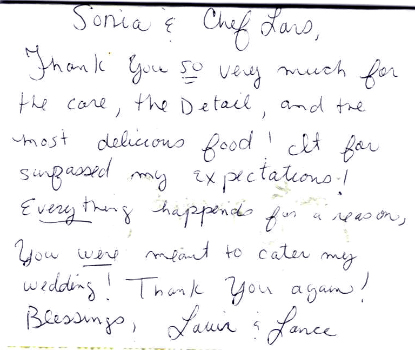 Sonia & Chef Lars,
Thank You so very much for
the care, the Detail, and the
most delicious food! It far
surpassed my expectations!
Everything happends for a reason,
You were meant to cater my
wedding! Thank You again!
Blessings, & Lance